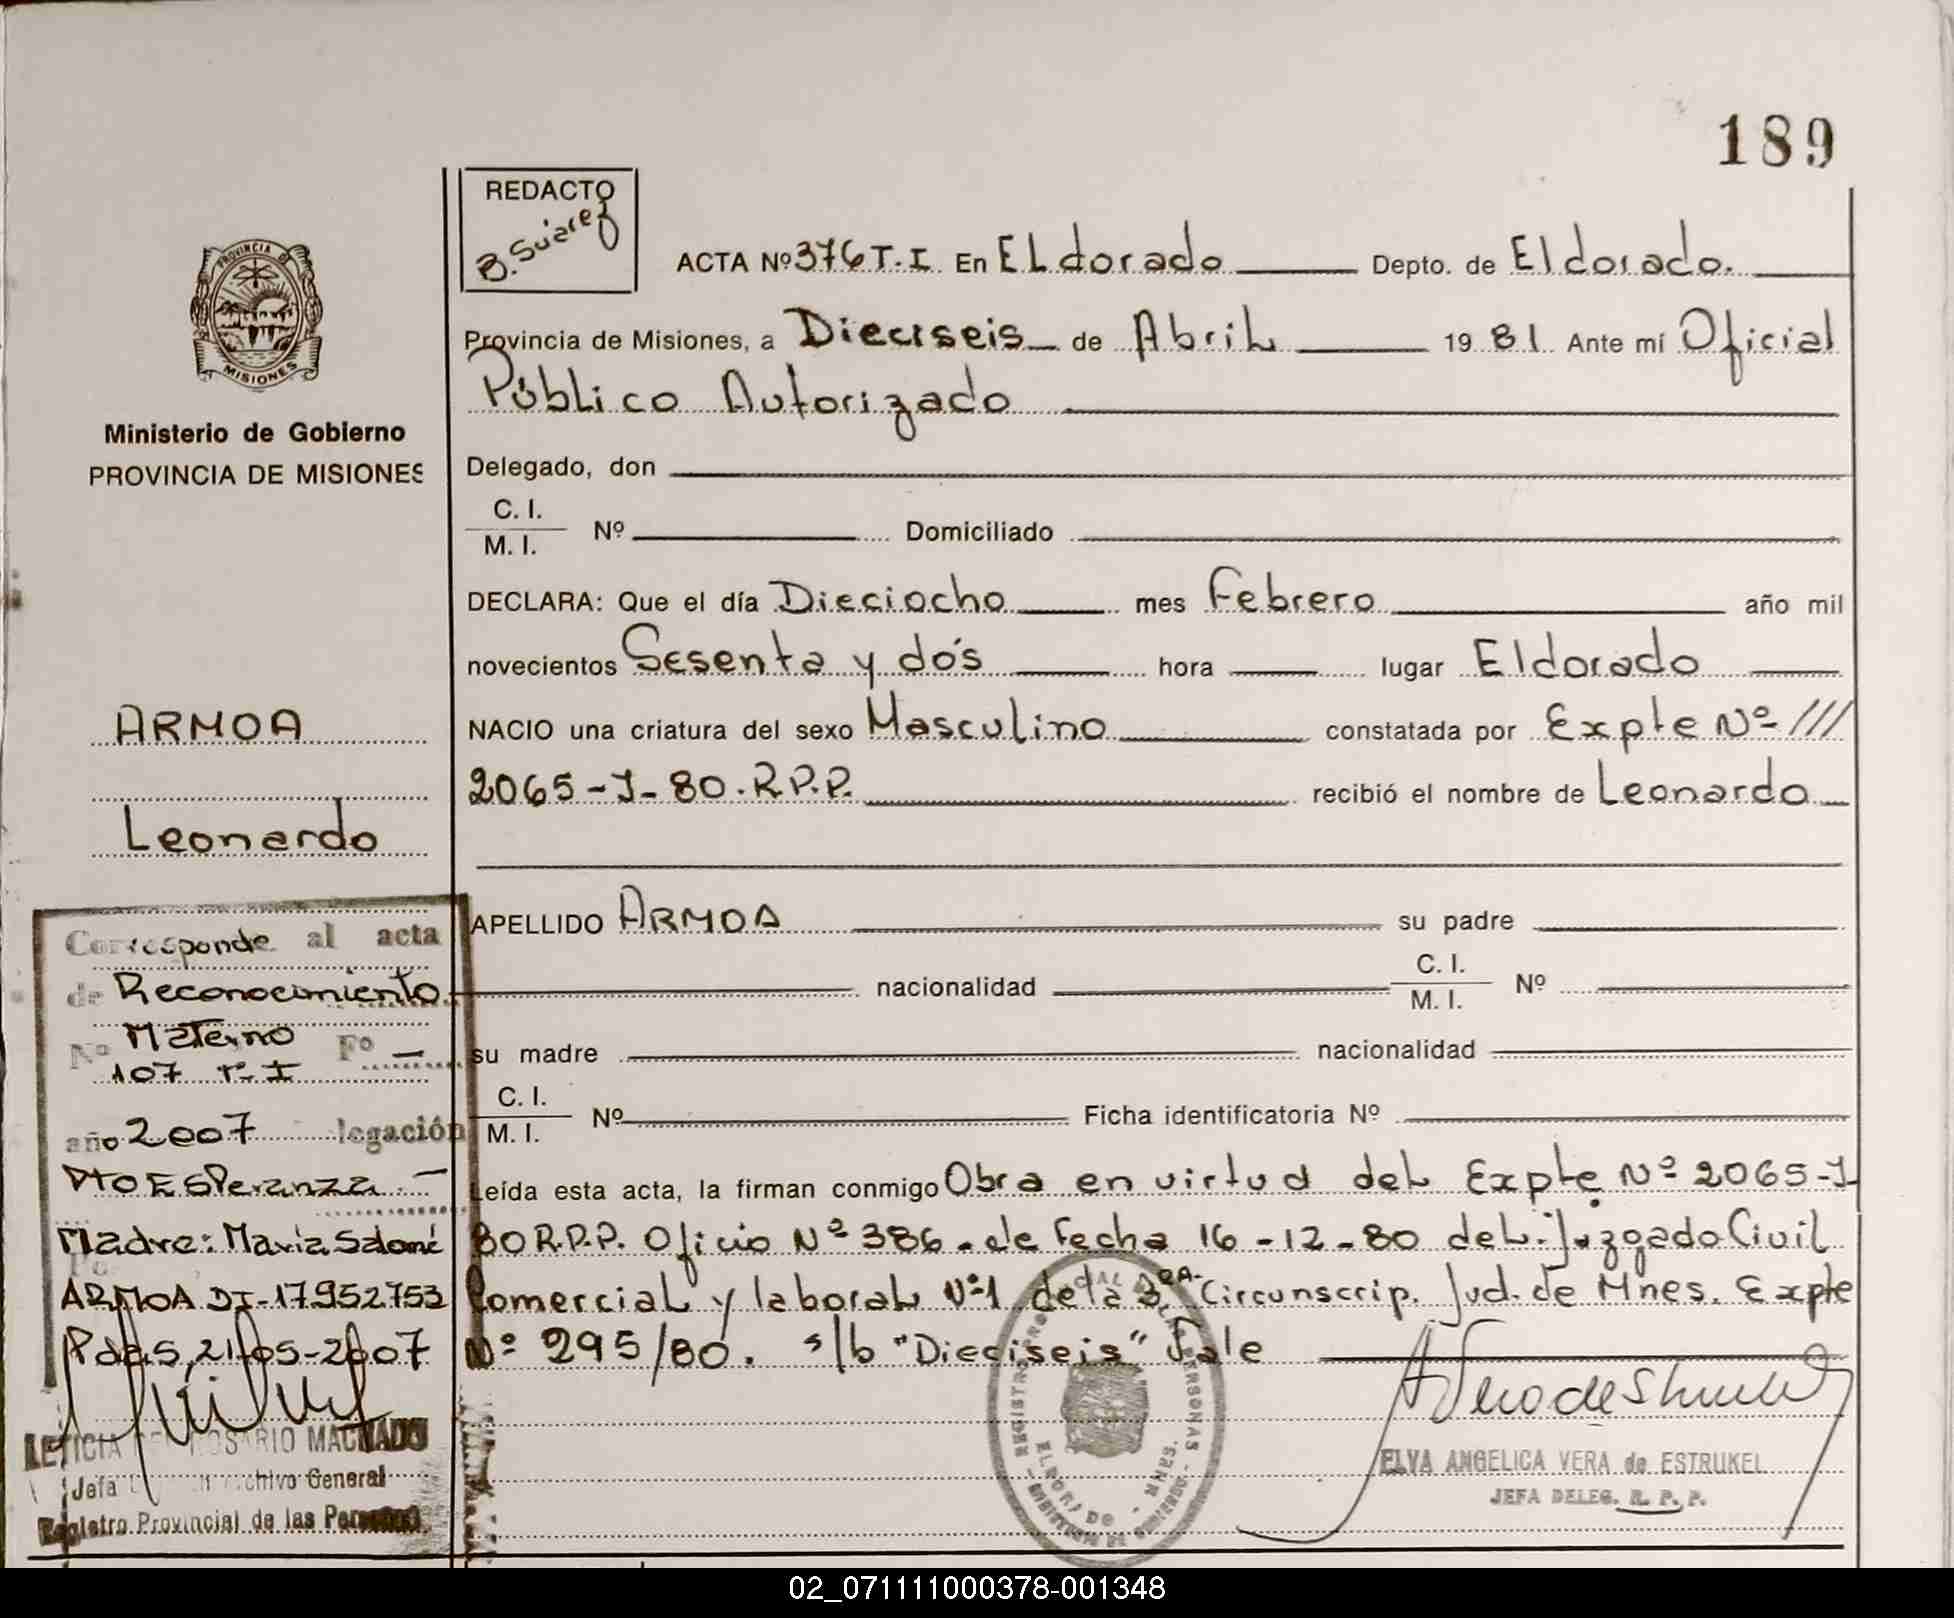 189
REDACTO
B. Suárez
ACTA Nº 376 T.I. En ELdorado Depto. de Eldorado.
PROVINCIA DE
MISIONES
Provincia de Misiones, a Dieciseis de AbriL 1981. Ante mí Oficial
PúbLico Autorizado
Ministerio de Gobierno
PROVINCIA DE MISIONES
Delegado, don
C. I.
M. I. Nº Domiciliado
DECLARA: Que el día Dieciocho mes Febrero año mil
novecientos Sesenta y dós hora lugar Eldorado
ARMOA
NACIO una criatura del sexo Masculino constatada por Expte Nº ///
2065-J-80.R.P.P. recibió el nombre de Leonardo
Leonardo
APELLIDO ARMOA su padre
nacionalidad C. I.
M. I. Nº
su madre nacionalidad
C. I.
M. I. Nº Ficha identificatoria Nº
Corresponde al acta
de Reconocimiento
Materno
Nº 107 T.I Fº —
año 2007 legación
Pto ESPeranza. —
Madre: María Salomé
ARMOA DI-17.952753
Pdas, 21-05-2007
LETICIA DEL ROSARIO MACHADO
Jefa Archivo General
Registro Provincial de las Personas
Leída esta acta, la firman conmigo Obra en virtud deL Expte Nº 2065-J
80 R.P.P. Oficio Nº 386. de Fecha 16-12-80 deL Juzgado Civil
ComerciaL y laboraL Nº1 de la 3ra. Circunscrip. Jud. de Mnes. Expte
Nº 295/80. s/b "Dieciseis" Vale
ELVA ANGELICA VERA de ESTRUKEL
JEFA DELEG. R. P. P.
02_071111000378-001348